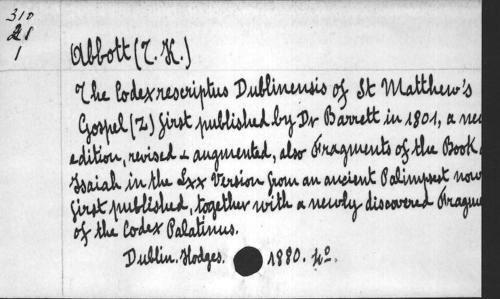 310
28
1
Abbott (T. K.)
The Codex rescriptus Dublinensis of St Matthew's
Gospel (Z) first published by Dr Barrett in 1801, a new
edition, revised & augmented, also Fragments of the Book
Isaiah in the Lxx Version from an ancient Palimpsest now
first published, together with a newly discovered Fragme
of the Codex Palatinus.
Dublin. Hodges. 1880. 4o.